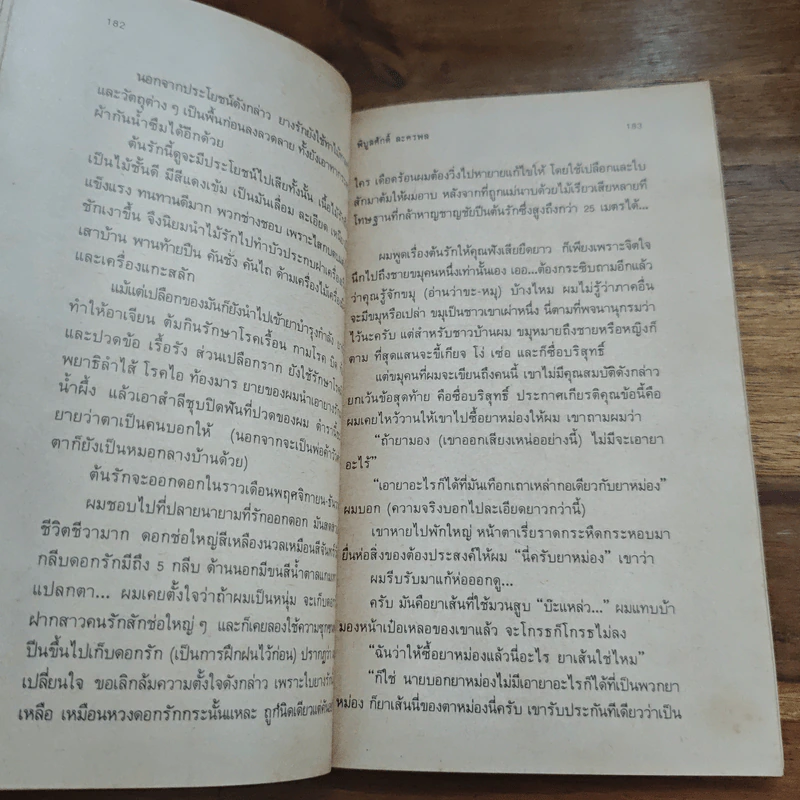 182
นอกจากประโยชน์ดังกล่าว ยางรักยังใช้ทาไม้
และวัตถุต่าง ๆ เป็นพื้นก่อนลงลวดลาย ทั้งยังเอา
ผ้ากันน้ำซึมได้อีกด้วย
ต้นรักนี้ดูจะมีประโยชน์ไปเสียทั้งนั้น เนื้อไม้
เป็นไม้ชั้นดี มีสีแดงเข้ม เป็นมันเลื่อม ละเอียด
แข็งแรง ทนทานดีมาก พวกช่างชอบ เพราะไสกบ
ชักเงาขึ้น จึงนิยมนำไม้รักไปทำบัวประกบฝาเครื่อง
เสาบ้าน พานท้ายปืน คันชั่ง คันไถ ด้ามเครื่องไม้
และเครื่องแกะสลัก
แม้แต่เปลือกของมันก็ยังนำไปเข้ายาบำรุงกำลัง
ทำให้อาเจียน ต้มกินรักษาโรคเรื้อน กามโรค บิด
และปวดข้อ เรื้อรัง ส่วนเปลือกราก ยังใช้รักษา
พยาธิลำไส้ โรคไอ ท้องมาร ยายของผมนำเอายาง
น้ำผึ้ง แล้วเอาสำลีชุบปิดฟันที่ปวดของผม
ยายว่าตาเป็นคนบอกให้ (นอกจากจะเป็นพ่อค้าวัว
ตาก็ยังเป็นหมอกลางบ้านด้วย)
ต้นรักจะออกดอกในราวเดือนพฤศจิกายน
ผมชอบไปที่ปลายนายามที่รักออกดอก มัน
ชีวิตชีวามาก ดอกช่อใหญ่สีเหลืองนวลเหมือนสี
กลีบดอกรักมีถึง 5 กลีบ ด้านนอกมีขนสีน้ำตาล
แปลกตา... ผมเคยตั้งใจว่าถ้าผมเป็นหนุ่ม จะเก็บดอก
ฝากสาวคนรักสักช่อใหญ่ ๆ และก็เคยลองใช้ความ
ปีนขึ้นไปเก็บดอกรัก (เป็นการฝึกฝนไว้ก่อน) ปรากฏว่า
เปลี่ยนใจ ขอเลิกล้มความตั้งใจดังกล่าว เพราะใบยาง
เหลือ เหมือนหวงดอกรักกระนั้นแหละ ถูกนิดเดียว
พิบูลศักดิ์ ละครพล
183
ใคร เดือดร้อนผมต้องวิ่งไปหายายแก้ไขให้ โดยใช้เปลือกและใบ
สักมาต้มให้ผมอาบ หลังจากที่ถูกแม่นาบด้วยไม้เรียวเสียหลายที
โทษฐานที่กล้าหาญชาญชัยปีนต้นรักซึ่งสูงถึงกว่า 25 เมตรได้...
ผมพูดเรื่องต้นรักให้คุณฟังเสียยืดยาว ก็เพียงเพราะจิตใจ
นึกไปถึงชายขมุคนหนึ่งเท่านั้นเอง เออ...ต้องกระซิบถามอีกแล้ว
ว่าคุณรู้จักขมุ (อ่านว่าขะ-หมุ) บ้างไหม ผมไม่รู้ว่าภาคอื่น
จะมีขมุหรือเปล่า ขมุเป็นชาวเขาเผ่าหนึ่ง นี่ตามที่พจนานุกรมว่า
ไว้นะครับ แต่สำหรับชาวบ้านผม ขมุหมายถึงชายหรือหญิงก็
ตาม ที่สุดแสนจะขี้เกียจ โง่ เซ่อ และก็ซื่อบริสุทธิ์
แต่ขมุคนที่ผมจะเขียนถึงคนนี้ เขาไม่มีคุณสมบัติดังกล่าว
ยกเว้นข้อสุดท้าย คือซื่อบริสุทธิ์ ประกาศเกียรติคุณข้อนี้คือ
ผมเคยไหว้วานให้เขาไปซื้อยาหม่องให้ผม เขาถามผมว่า
“ถ้ายามอง (เขาออกเสียงเหน่ออย่างนี้) ไม่มีจะเอายา
อะไร้”
“เอายาอะไรก็ได้ที่มันเทือกเถาเหล่ากอเดียวกับยาหม่อง”
ผมบอก (ความจริงบอกไปละเอียดยาวกว่านี้)
เขาหายไปพักใหญ่ หน้าตาเรี่ยราดกระหืดกระหอบมา
ยื่นห่อสิ่งของต้องประสงค์ให้ผม “นี่ครับยาหม่อง” เขาว่า
ผมรีบรับมาแก้ห่อออกดู...
ครับ มันคือยาเส้นที่ใช้มวนสูบ “บ๊ะแหล่ว...” ผมแทบบ้า
มองหน้าเป๋อเหลอของเขาแล้ว จะโกรธก็โกรธไม่ลง
“ฉันว่าให้ซื้อยาหม่องแล้วนี่อะไร ยาเส้นใช่ไหม”
“ก็ใช่ นายบอกยาหม่องไม่มีเอายาอะไรก็ได้ที่เป็นพวกยา
หม่อง ก็ยาเส้นนี่ของตาหม่องนี่ครับ เขารับประกันทีเดียวว่าเป็น